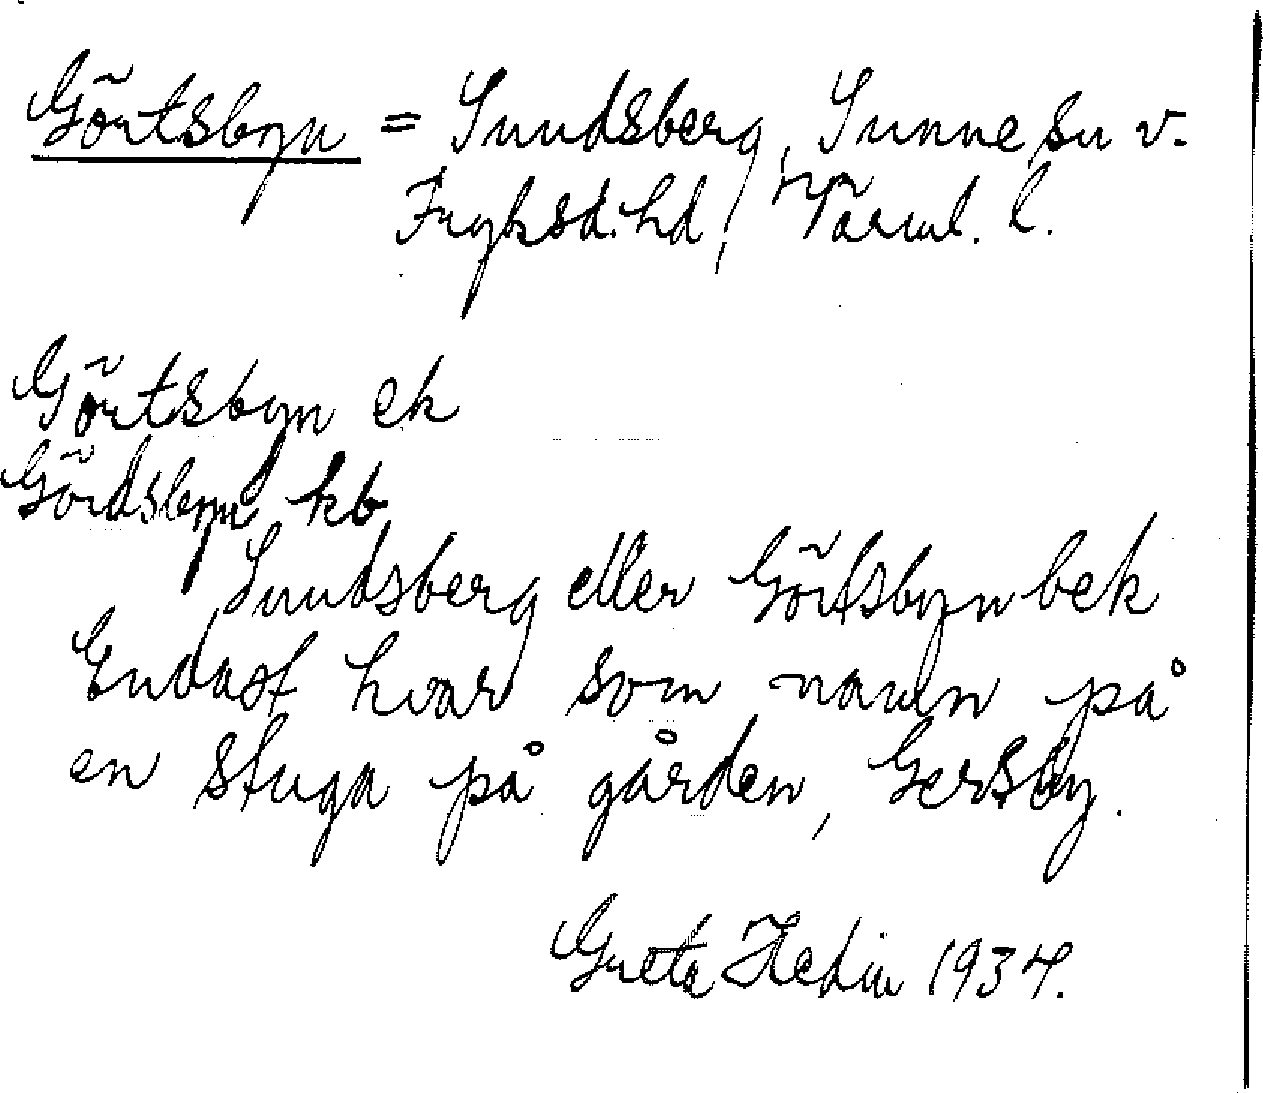 Görtsbyn = Sundsberg, Sunne sn v.
Fryksd. hd, Värml. l.
Görtsbyn ek
Gördsbyn kb
Sundsberg eller Gördsbyn bek
Endast kvar som namn på
en stuga på gården, Gersby.
Greta Hedin 1934.